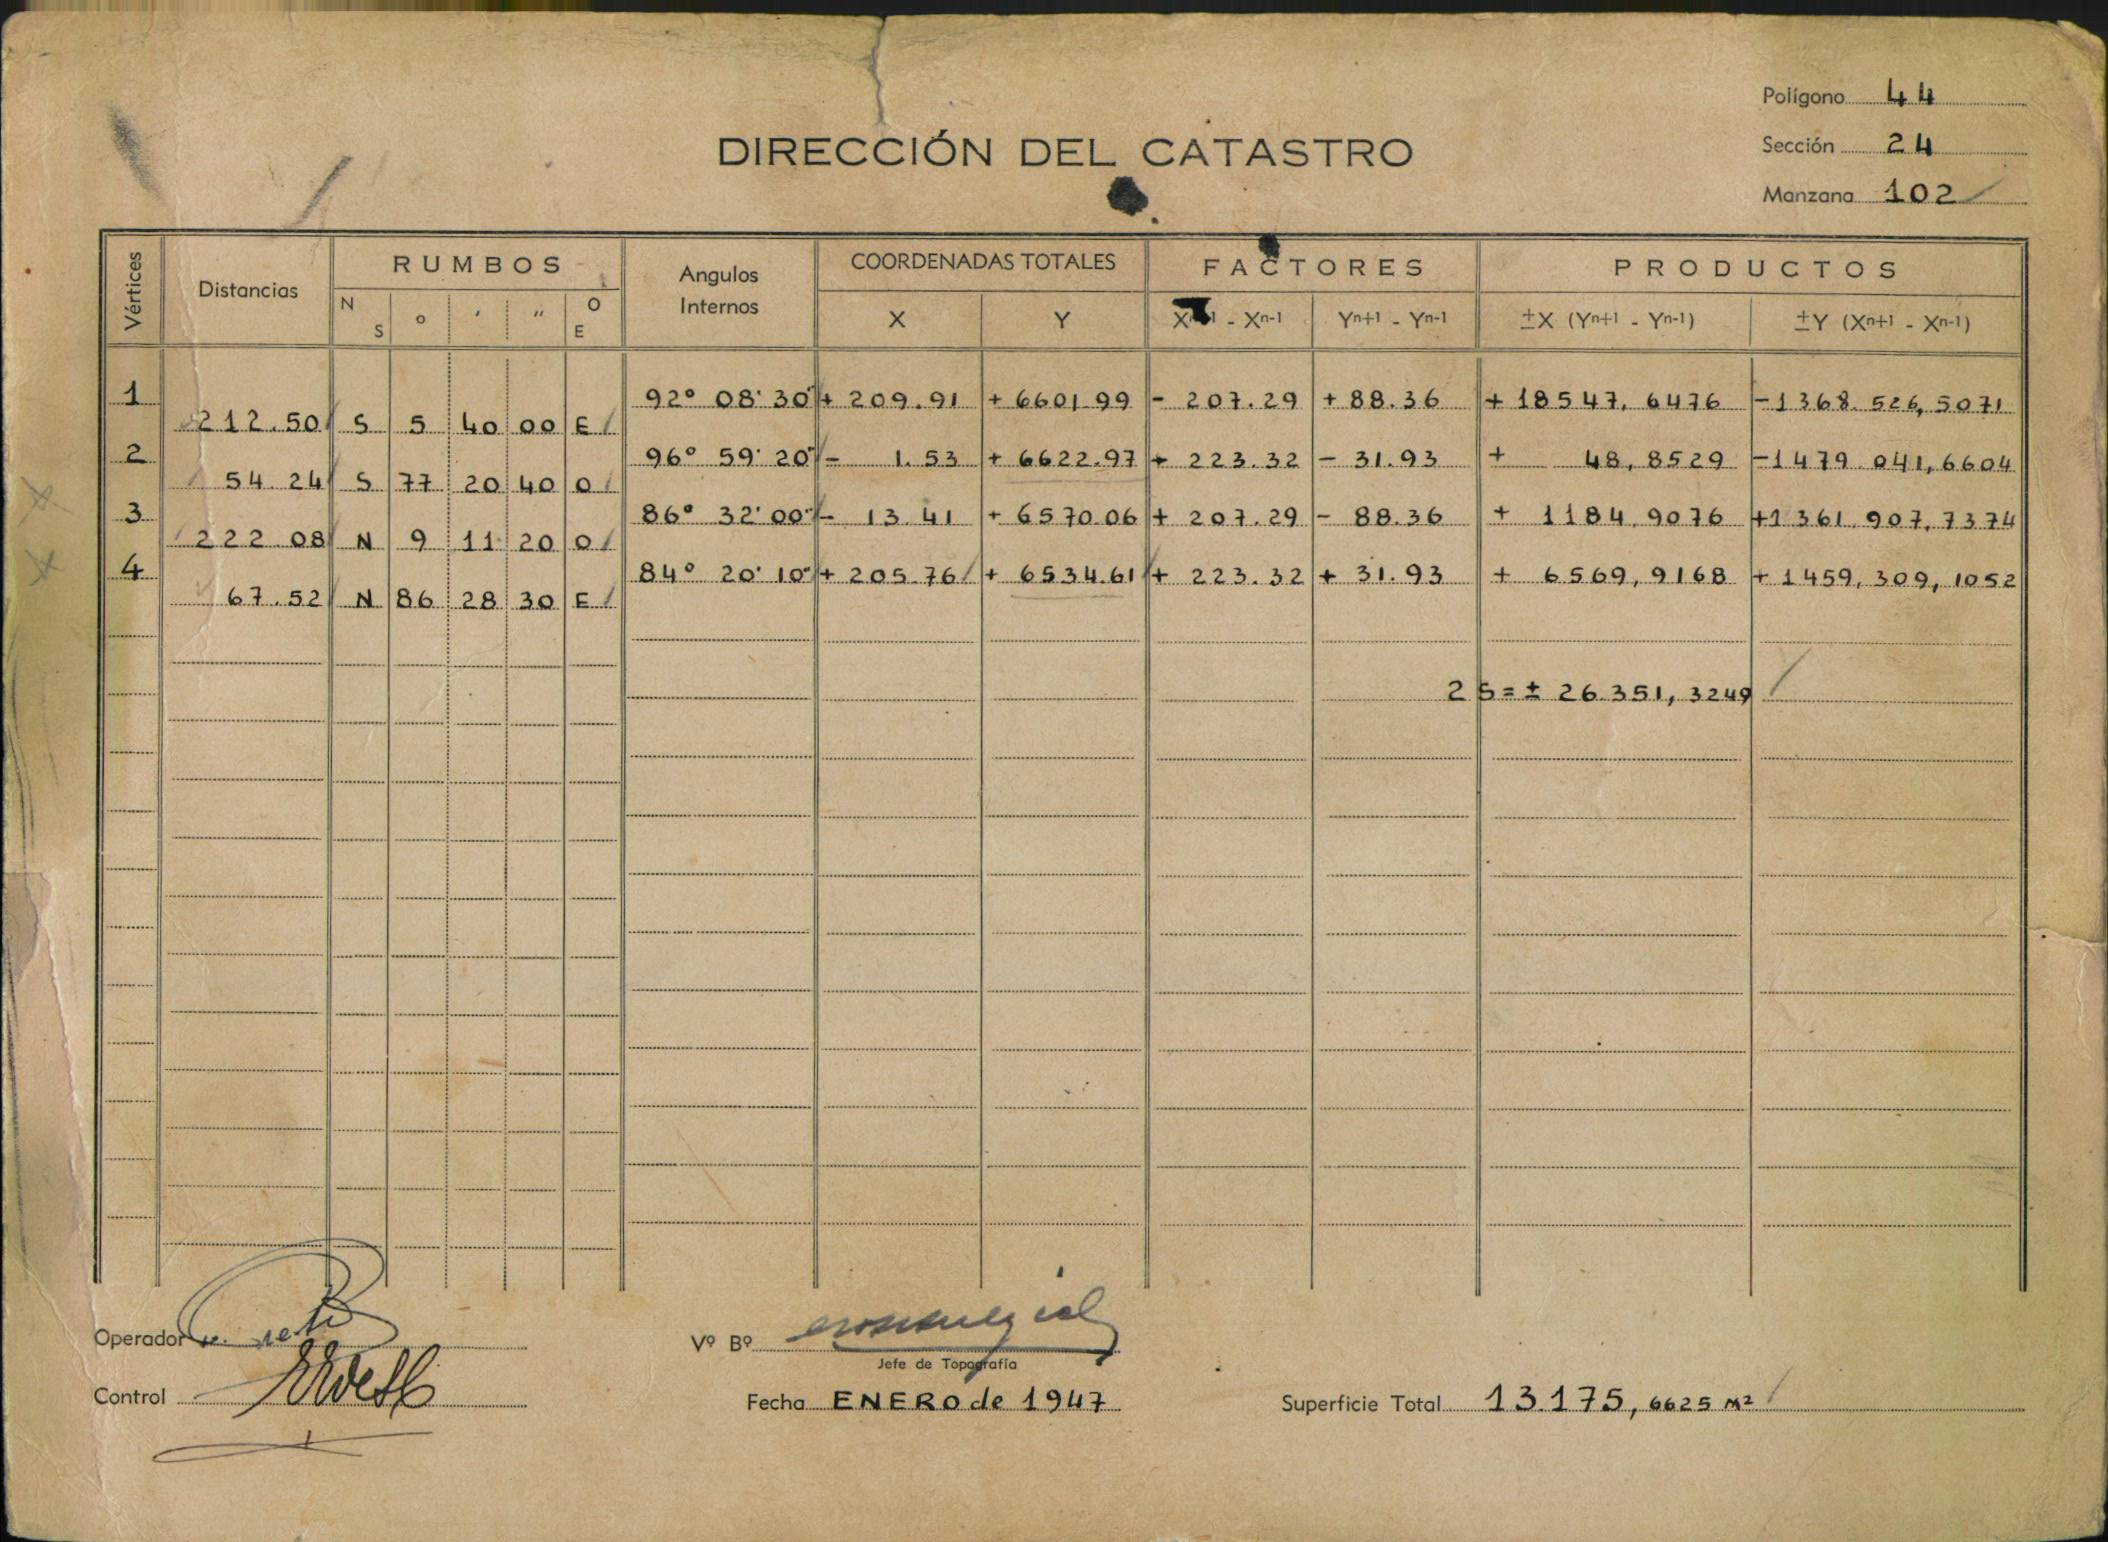 Polígono 44
DIRECCIÓN DEL CATASTRO
Sección 24
Manzana 102
Vértices Distancias RUMBOS Angulos Internos COORDENADAS TOTALES FACTORES PRODUCTOS
N S ° ′ ″ O E X Y Xⁿ⁺¹ - Xⁿ⁻¹ Yⁿ⁺¹ - Yⁿ⁻¹ ±X (Yⁿ⁺¹ - Yⁿ⁻¹) ±Y (Xⁿ⁺¹ - Xⁿ⁻¹)
1 92° 08' 30" + 209.91 + 6601.99 - 207.29 + 88.36 + 18547,6476 -1368.526,5071
212.50 S 5 40 00 E
2 96° 59' 20" - 1.53 + 6622.97 - 223.32 - 31.93 + 48,8529 -1479.041,6604
54.24 S 77 20 40 O
3 86° 32' 00" - 13.41 + 6570.06 + 207.29 - 88.36 + 1184,9076 +1361.907,7374
222.08 N 9 11 20 O
4 84° 20' 10" + 205.76 + 6534.61 + 223.32 + 31.93 + 6569,9168 + 1459,309,1052
67.52 N 86 28 30 E
2 S = ± 26.351,3249
Operador
Vº Bº
Jefe de Topografía
Control
Fecha ENERO de 1947
Superficie Total 13.175,6625 M²